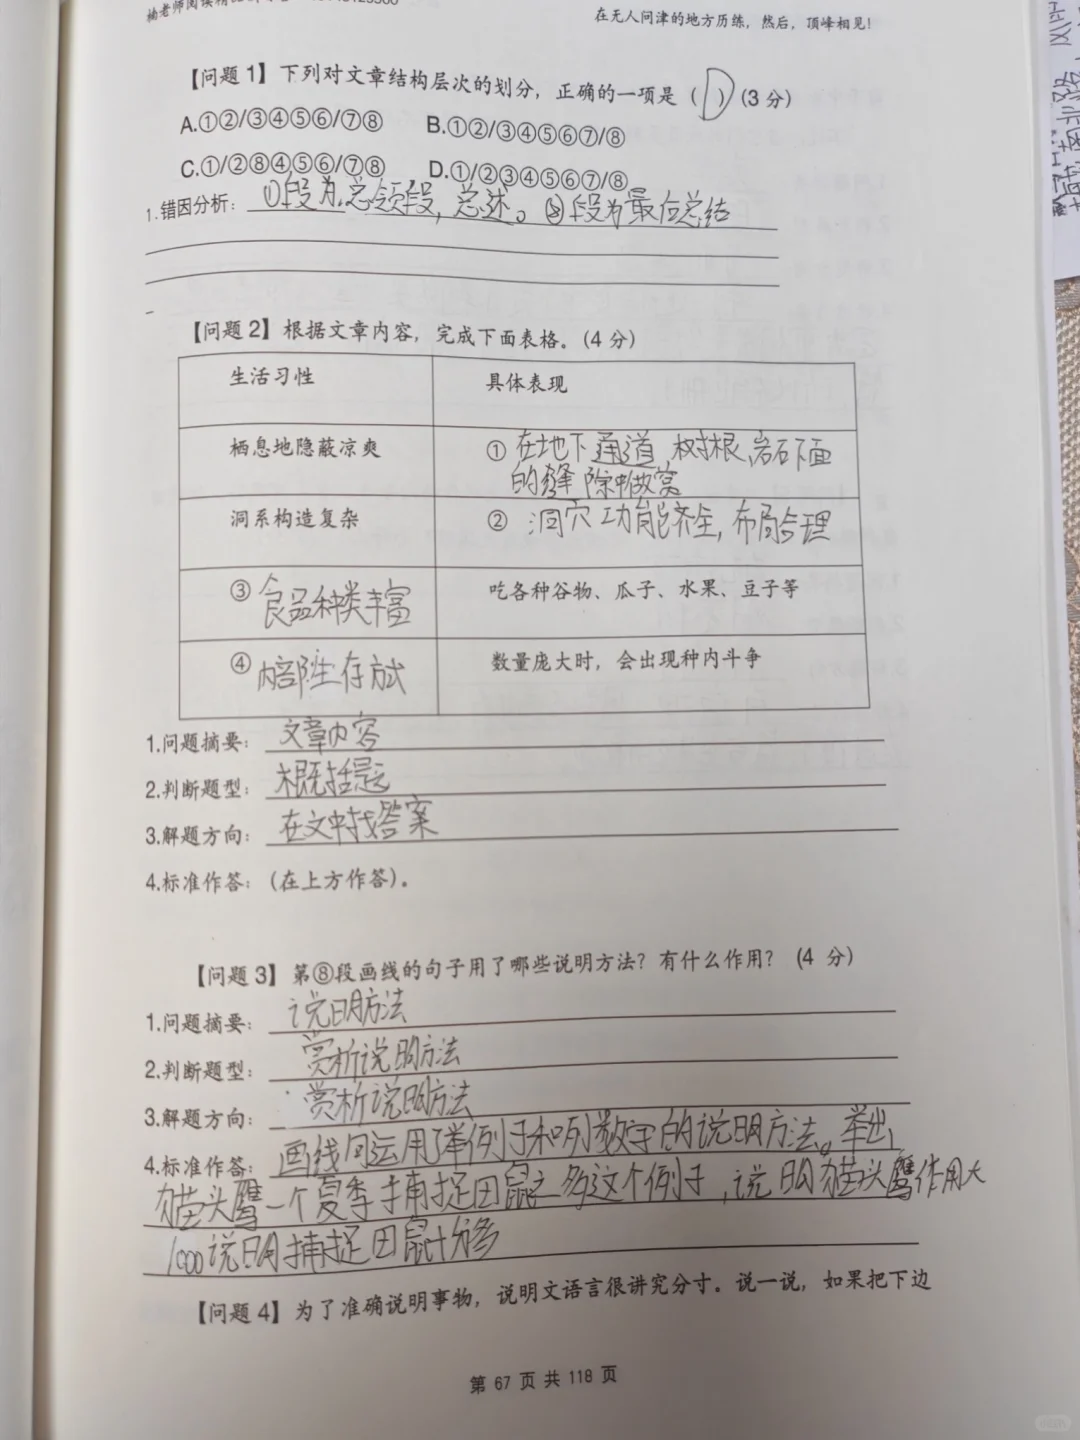 在无人问津的地方历练，然后，顶峰相见！
【问题1】下列对文章结构层次的划分，正确的一项是（D）(3分)
A.①②/③④⑤⑥/⑦⑧ B.①②/③④⑤⑥⑦/⑧
C.①/②⑧④⑤⑥/⑦⑧ D.①/②③④⑤⑥⑦/⑧
1.错因分析：①段为总领段，总述。⑧段为最后总结
【问题2】根据文章内容，完成下面表格。(4分)
生活习性 具体表现
栖息地隐蔽凉爽 ①在地下通道、树根、岩石下面
的缝隙中做窝
洞系构造复杂 ②洞穴功能齐全，布局合理
③食品种类丰富 吃各种谷物、瓜子、水果、豆子等
④内部生存方式 数量庞大时，会出现种内斗争
1.问题摘要：文章内容
2.判断题型：概括题
3.解题方向：在文中找答案
4.标准作答：(在上方作答)。
【问题3】第⑧段画线的句子用了哪些说明方法？有什么作用？ (4 分)
1.问题摘要：说明方法
2.判断题型：赏析说明方法
3.解题方向：赏析说明方法
4.标准作答：画线句运用了举例子和列数字的说明方法。举出
猫头鹰一个夏季捕捉田鼠之多这个例子，说明猫头鹰作用大
1000说明捕捉田鼠十分多
【问题4】为了准确说明事物，说明文语言很讲究分寸。说一说，如果把下边
第 67 页 共 118 页